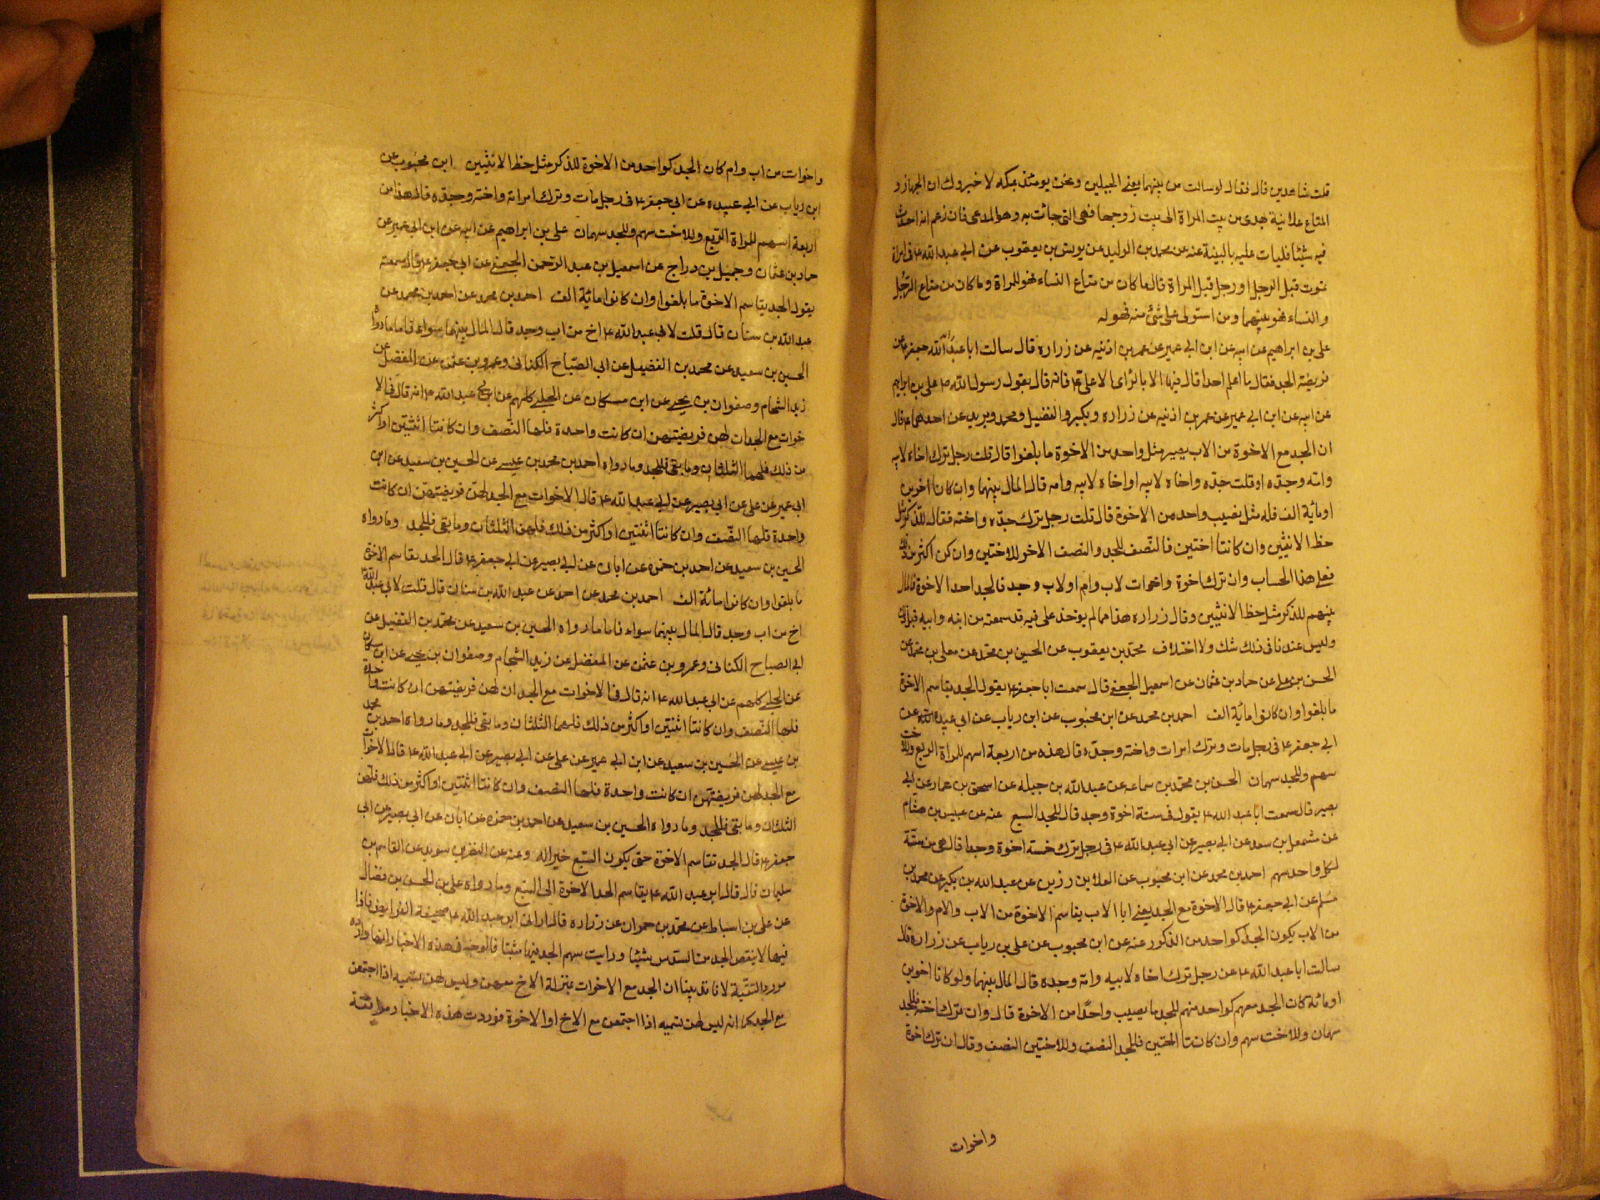 قلت شاهدين قال فقال لو سالت من بينهما يعنى الجبلين وعن يومئذ بمكه لاخبروك ان الجهاز و
المتاع علانية يهدى من بيت المراة الى بيت زوجها فهى التى جاءت به وهو المدعى فان زعم انه احدث
فيه شيئا فليات عليه بالبينة عنه عن محمد بن الوليد عن يونس بن يعقوب عن ابى عبد الله ع فى امراة
تموت قبل الرجل او رجل قبل المراة قال ما كان من متاع النساء فهو للمراة وما كان من متاع الرجل
والنساء فهو بينهما ومن استولى على شئ منه فهو له
على بن ابراهيم عن ابيه عن ابن ابى عمير عن عمر بن اذينه عن زراره قال سالت ابا عبد الله جعفر ع عن
فريضة الجد فقال ما اعلم احدا قال فيها الا بالراى الا على ع فانه قال بقول رسول الله ص على بن ابراهيم
عن ابيه عن ابن ابى عمير عن عمر بن اذينه عن زراره وبكير والفضيل ومحمد وبريد عن احدهما ع قال
ان الجد مع الاخوة من الاب يصير مثل واحد من الاخوة ما بلغوا قال قلت رجل ترك اخاه لابيه
وامه وجده او قلت جده واخاه لابيه او اخاه لابيه وامه قال المال بينهما وان كانا اخوين
او مائة الف فله مثل نصيب واحد من الاخوة قال قلت رجل ترك جده واخته فقال للذكر مثل
حظ الانثيين وان كانتا اختين فالنصف للجد والنصف الاخر للاختين وان كن اكثر من ذلك
فعلى هذا الحساب وان ترك اخوة واخوات لاب وام او لاب وجد فالجد احد الاخوة فالمال
بينهم للذكر مثل حظ الانثيين وقال زراره هذا مما لم يوخذ على فيه قد سمعته من ابنه وابيه قبل ذلك
وليس عندنا فى ذلك شك ولا اختلاف محمد بن يعقوب عن الحسين بن محمد عن معلى بن محمد عن
الحسن بن على عن حماد بن عثمان عن اسمعيل الجعفى قال سمعت ابا جعفر ع يقول الجد يقاسم الاخوة
ما بلغوا وان كانوا مائة الف احمد بن محمد عن ابن محبوب عن ابن رياب عن ابى عبيده عن
ابى جعفر ع فى رجل مات وترك امرات واخته وجده قال هذه من اربعة اسهم للمراة الربع وللاخت
سهم وللجد سهمان الحسن بن محمد بن سماعه عن عبد الله بن جبله عن اسحق بن عمار عن ابى
بصير قال سمعت ابا عبد الله ع يقول فى ستة اخوة وجد قال للجد السبع عنه عن عبيس بن هشام
عن مشمعل بن سعد عن ابى بصير عن ابى عبد الله ع فى رجل ترك خمسة اخوة وجدا قال هى من ستة
لكل واحد سهم احمد بن محمد عن ابن محبوب عن العلا بن رزين عن عبد الله بن بكير عن محمد بن
مسلم عن ابى جعفر ع قال الاخوة مع الجد يعنى ابا الاب يقاسم الاخوة من الاب والام والاخوة
من الاب يكون الجد كواحد من الذكور عنه عن ابن محبوب عن على بن رياب عن زراره قال
سالت ابا عبد الله ع عن رجل ترك اخاه لابيه وامه وجده قال المال بينهما ولو كانا اخوين
او مائة كان الجد معهم كواحد منهم للجد ما يصيب واحدا من الاخوة قال وان ترك اخته فللجد
سهمان وللاخت سهم وان كانتا اختين فللجد النصف وللاختين النصف وقال ان ترك اخوة
واخوات
واخوات من اب وام كان الجد كواحد من الاخوة للذكر مثل حظ الانثيين ابن محبوب عن
ابن رياب عن ابى عبيده عن ابى جعفر ع فى رجل مات وترك امراته واخته وجده قال هذا من
اربعة اسهم للمراة الربع وللاخت سهم وللجد سهمان على بن ابراهيم عن ابيه عن ابن ابى عمير عن
حماد بن عثمان وجميل بن دراج عن اسمعيل بن عبد الرحمن الجعفى عن ابى جعفر ع قال سمعته
يقول الجد يقاسم الاخوة ما بلغوا وان كانوا مائة الف احمد بن محمد عن احمد بن محمد عن
عبد الله بن سنان قال قلت لابى عبد الله ع اخ من اب وجد قال المال بينهما سواء فاما ما رواه
الحسين بن سعيد عن محمد بن الفضيل عن ابى الصباح الكنانى وعمرو بن عثمن عن المفضل عن
زيد الشحام وصفوان بن يحيى عن ابن مسكان عن الحلبى كلهم عن ابى عبد الله ع انه قال فى الا
خوات مع الجد ان لهن فريضتهن ان كانت واحدة فلها النصف وان كانتا اثنتين او اكثر
من ذلك فلهما الثلثان وما بقى فللجد وما رواه احمد بن محمد بن عيسى عن الحسين بن سعيد عن ابن
ابى عمير عن على عن ابى بصير عن ابى عبد الله ع قال الاخوات مع الجد لهن فريضتهن ان كانت
واحدة فلها النصف وان كانتا اثنتين او اكثر من ذلك فلهن الثلثان وما بقى فللجد وما رواه
الحسين بن سعيد عن احمد بن حمزه عن ابان عن ابى بصير عن ابى جعفر ع قال الجد يقاسم الاخوة
ما بلغوا وان كانوا مائة الف احمد بن محمد عن احمد عن عبد الله بن سنان قال قلت لابى عبد الله ع
اخ من اب وجد قال المال بينهما سواء فاما ما رواه الحسين بن سعيد عن محمد بن الفضيل عن
ابى الصباح الكنانى وعمرو بن عثمن عن المفضل عن زيد الشحام وصفوان بن يحيى عن ابن مسكان
عن الحلبى كلهم عن ابى عبد الله ع انه قال فى الاخوات مع الجد ان لهن فريضتهن ان كانت واحدة
فلها النصف وان كانتا اثنتين او اكثر من ذلك فلهما الثلثان وما بقى فللجد وما رواه احمد بن محمد
بن عيسى عن الحسين بن سعيد عن ابن ابى عمير عن على عن ابى بصير عن ابى عبد الله ع قال الاخوات
مع الجد لهن فريضتهن ان كانت واحدة فلها النصف وان كانتا اثنتين او اكثر من ذلك فلهن
الثلثان وما بقى فللجد وما رواه الحسين بن سعيد عن احمد بن حمزه عن ابان عن ابى بصير عن ابى
جعفر ع قال الجد تقاسم الاخوة حتى يكون السبع خيرا له وعنه عن النضر بن سويد عن القاسم بن
سليمان قال قال ابو عبد الله ع يقاسم الجد الاخوة الى السبع وما رواه على بن الحسن بن فضال
عن على بن اسباط عن محمد بن حمران عن زراره قال ارانى ابو عبد الله ع صحيفة الفرايض فاذا
فيها لا ينقص الجد من السدس شيئا ورايت سهم الجد فيها مثبتا فالوجه فى هذه الاخبار انها وارده
مورد التقية لانا قد بينا ان الجد مع الاخوات بمنزلة الاخ معهن وليس لهن تسميه اذا اجتمعن
مع الجد كما انه ليس لهن تسميه اذا اجتمعن مع الاخ او الاخوة فوردت هذه الاخبار موافقة